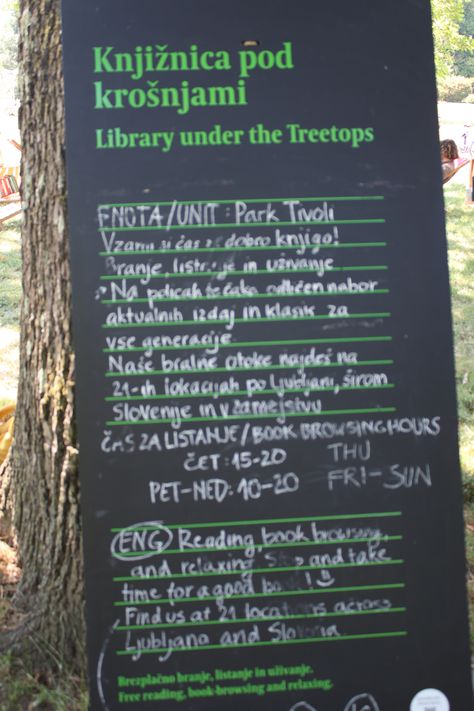 Knjižnica pod
krošnjami
Library under the Treetops
ENOTA/UNIT: Park Tivoli
Vzami si čas za dobro knjigo!
Branje, listanje in uživanje
Na policah te čaka odličen nabor
aktualnih izdaj in klasik za
vse generacije.
Naše bralne otoke najdeš na
21-ih lokacijah po Ljubljani, širom
Slovenije in v zamejstvu
ČAS ZA LISTANJE/BOOK BROWSING HOURS
ČET: 15-20 THU
PET-NED: 10-20 FRI-SUN
ENG Reading, book browsing,
and relaxing. Stop and take
time for a good book!
Find us at 21 locations across
Ljubljana and Slovenia
Brezplačno branje, listanje in uživanje.
Free reading, book-browsing and relaxing.